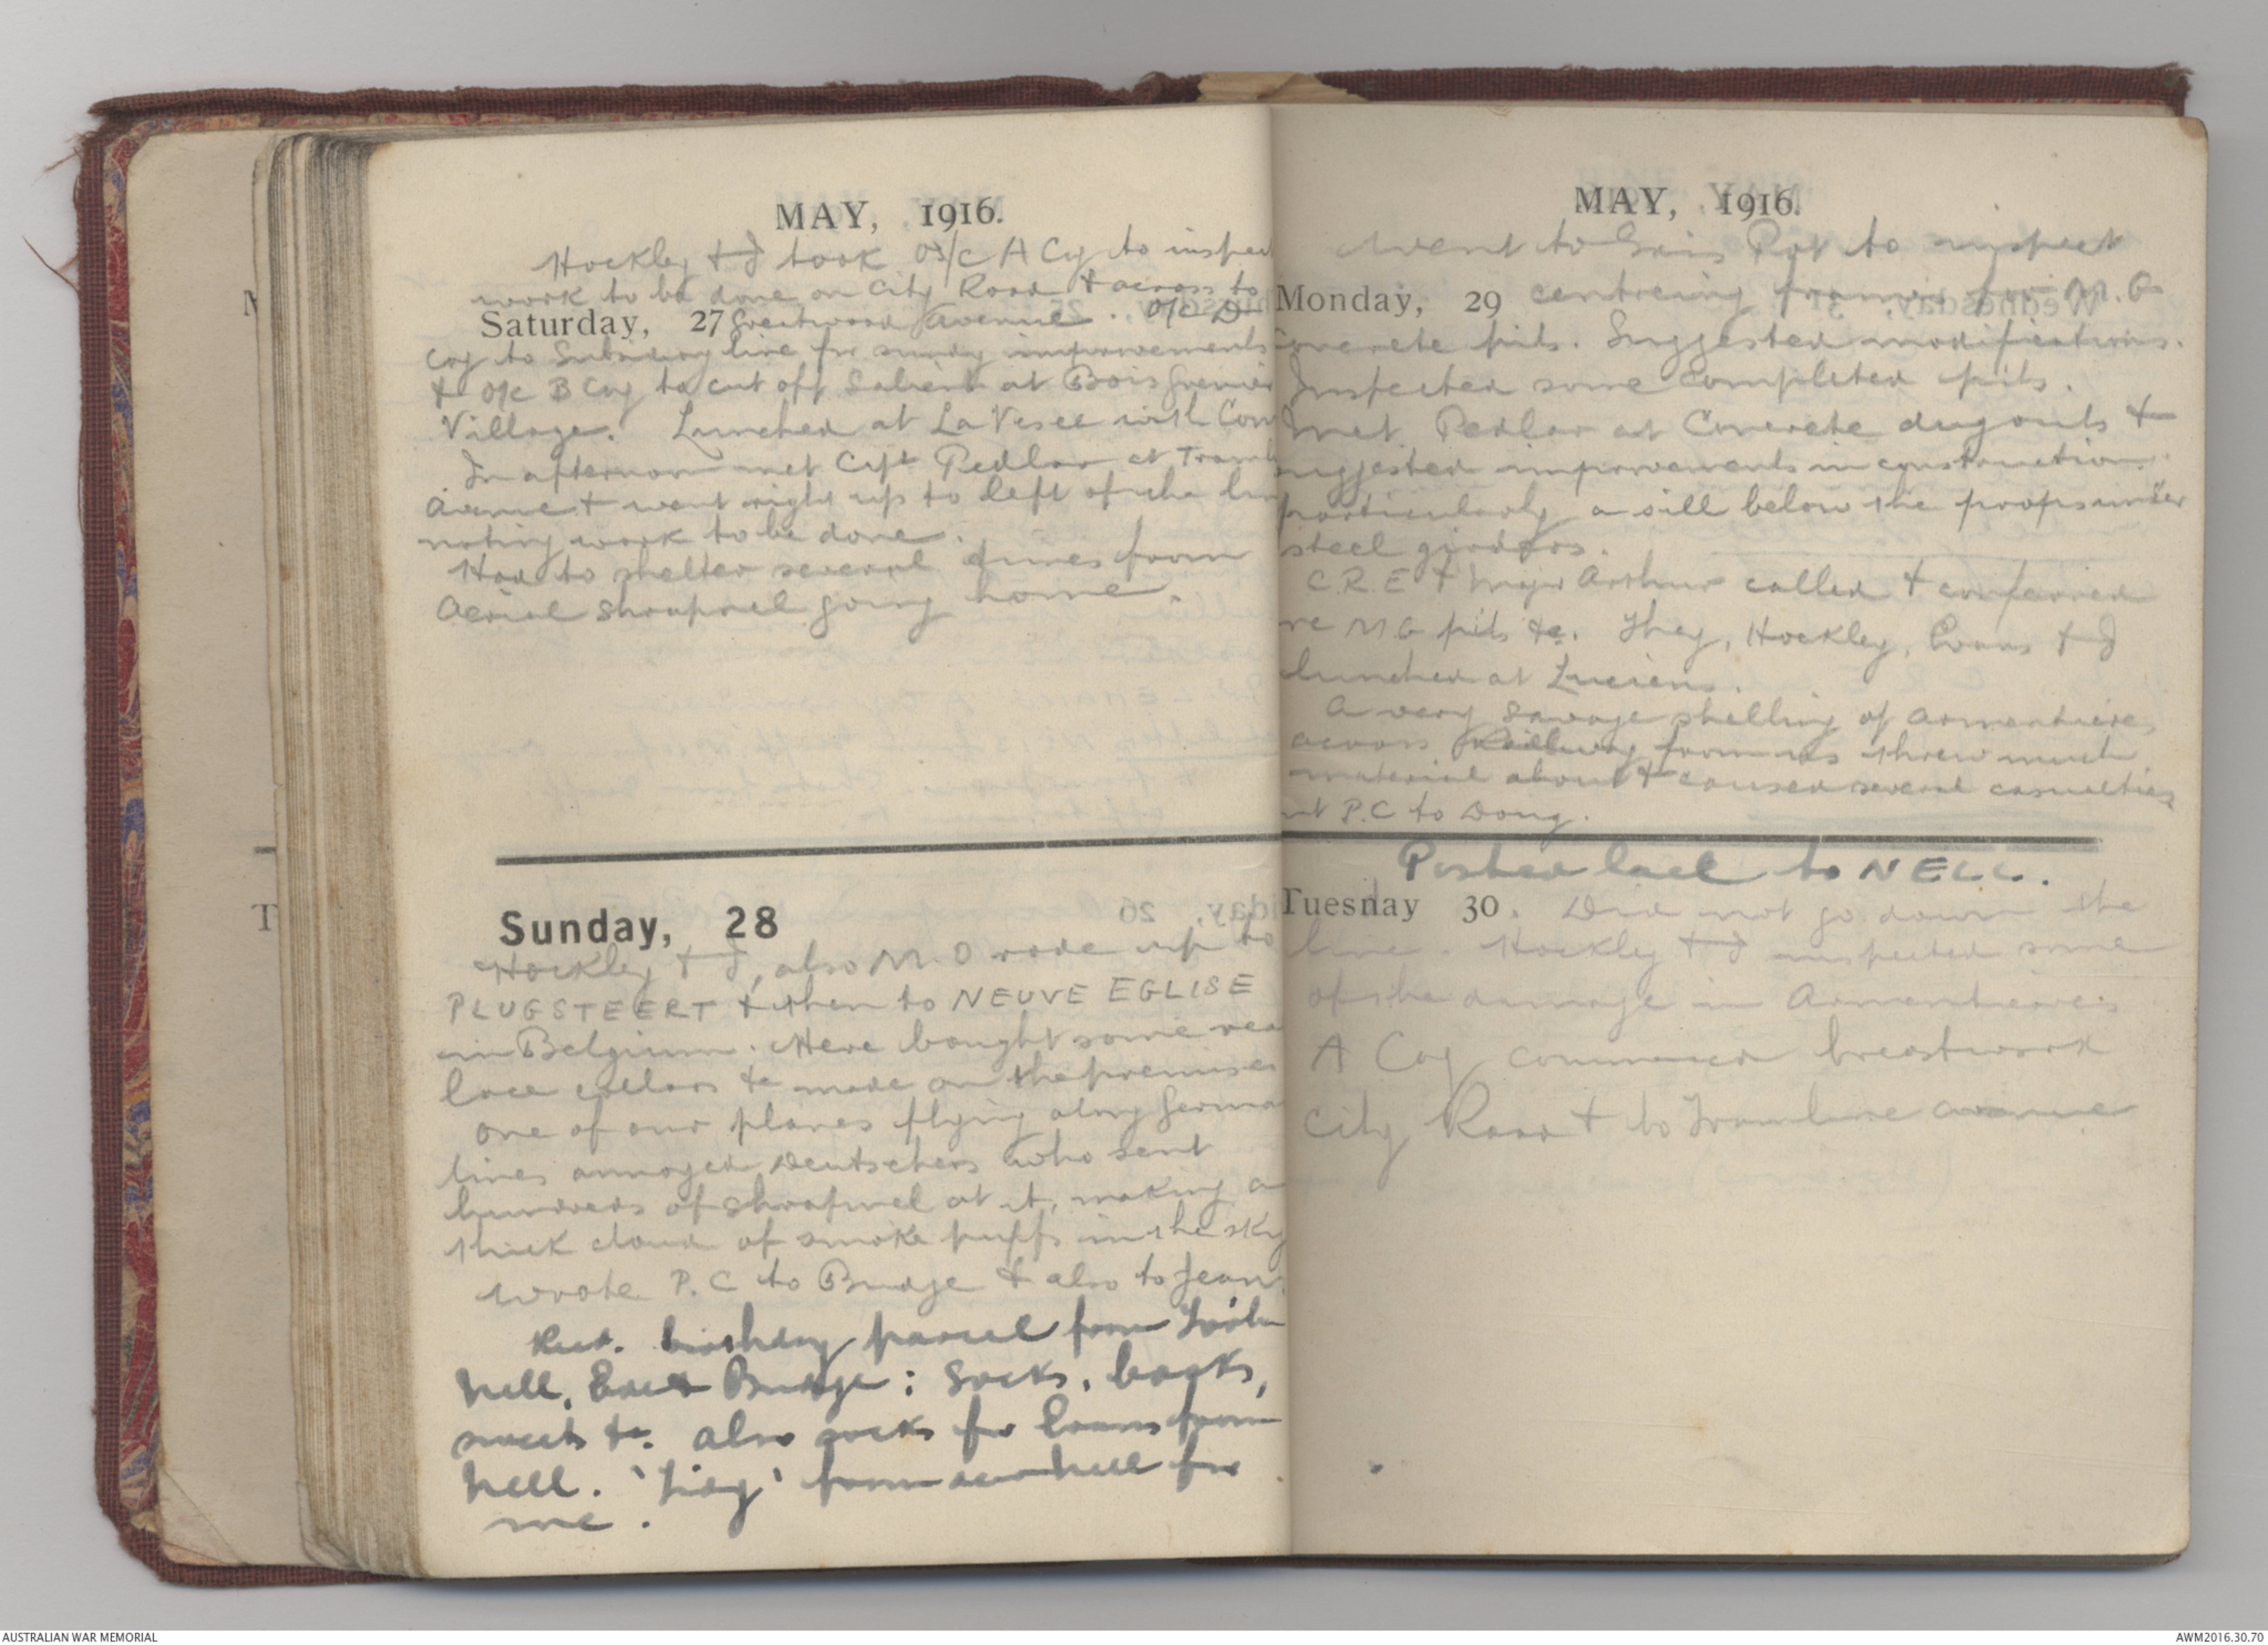 MAY, 1916.
Hockley + I took O's/C A Coy to inspec
work to be done on City Road + across to
Saturday, 27 Greatwood Avenue. O/C D
Coy to Subsidiary line for sundry improvements
+ O/c B Coy to cut off Salient at Bois Grenier
Village. Lunched at La Vesee with Com
In afternoon met Capt Pedlar at Traml
Avenue + went right up to left of the lin
noting work to be done.
Had to shelter several times from
Aerial Shrapnel going home.
Sunday, 28
Hockley + I, also M.O rode up to
PLUGSTEERT + then to NEUVE EGLISE
in Belgium. Here bought some rea
lace collars &c made on the premises
One of our planes flying along Germa
lines annoyed Deutschers who sent
hundreds of shrapnel at it, making a
thick cloud of smoke puffs in the sky
Wrote P.C to Budge + also to Jean
Recd. birthday parcel from
Nell, Budge: Socks, books,
sweets &c. also socks for Evans from
Nell. 'Tidy' from for
me.
MAY, 1916.
Went to Gris Pot to inspect
Monday, 29 centreing frames for M.G
concrete pits. Suggested modifications.
Inspected some completed pits.
Met Pedlar at Concrete dugouts +
suggested improvements in construction
particularly a sill below the props under
steel girders.
C.R.E + Major Arthur called + conferred
re M G pits &c. They, Hockley, Evans + I
lunched at Luciens.
A very savage shelling of Armentieres
across Railway from us threw much
material about + caused several casualties
P.C to Doug.
Posted lace to NELL.
Tuesday 30. Did not go down the
line. Hockley + I inspected some
of the damage in Armentieres
A Coy commenced breastwork
City Road + to Tramline avenue
AUSTRALIAN WAR MEMORIAL
AWM2016.30.70